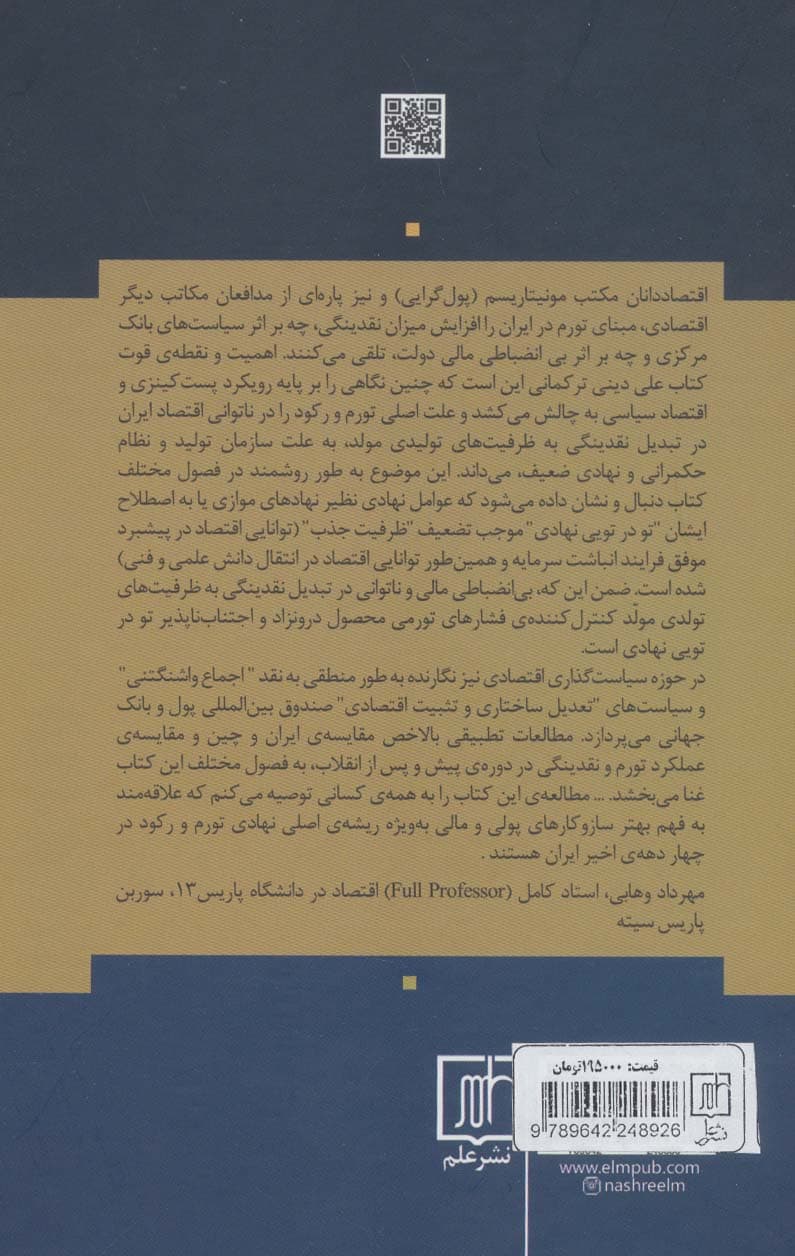 اقتصاددانان مکتب مونیتاریسم (پول‌گرایی) و نیز پاره‌ای از مدافعان مکاتب دیگر
اقتصادی، مبنای تورم در ایران را افزایش میزان نقدینگی، چه بر اثر سیاست‌های بانک
مرکزی و چه بر اثر بی انضباطی مالی دولت، تلقی می‌کنند. اهمیت و نقطه‌ی قوت
کتاب علی دینی ترکمانی این است که چنین نگاهی را بر پایه رویکرد پست‌کینزی و
اقتصاد سیاسی به چالش می‌کشد و علت اصلی تورم و رکود را در ناتوانی اقتصاد ایران
در تبدیل نقدینگی به ظرفیت‌های تولیدی مولد، به علت سازمان تولید و نظام
حکمرانی و نهادی ضعیف، می‌داند. این موضوع به طور روشمند در فصول مختلف
کتاب دنبال و نشان داده می‌شود که عوامل نهادی نظیر نهادهای موازی یا به اصطلاح
ایشان "تو در تویی نهادی" موجب تضعیف "ظرفیت جذب" (توانایی اقتصاد در پیشبرد
موفق فرایند انباشت سرمایه و همین‌طور توانایی اقتصاد در انتقال دانش علمی و فنی)
شده است. ضمن این که، بی‌انضباطی مالی و ناتوانی در تبدیل نقدینگی به ظرفیت‌های
تولدی مولّد کنترل‌کننده‌ی فشارهای تورمی محصول درونزاد و اجتناب‌ناپذیر تو در
تویی نهادی است.
در حوزه سیاست‌گذاری اقتصادی نیز نگارنده به طور منطقی به نقد " اجماع واشنگتنی"
و سیاست‌های "تعدیل ساختاری و تثبیت اقتصادی" صندوق بین‌المللی پول و بانک
جهانی می‌پردازد. مطالعات تطبیقی بالاخص مقایسه‌ی ایران و چین و مقایسه‌ی
عملکرد تورم و نقدینگی در دوره‌ی پیش و پس از انقلاب، به فصول مختلف این کتاب
غنا می‌بخشد. ... مطالعه‌ی این کتاب را به همه‌ی کسانی توصیه می‌کنم که علاقه‌مند
به فهم بهتر سازوکارهای پولی و مالی به‌ویژه ریشه‌ی اصلی نهادی تورم و رکود در
چهار دهه‌ی اخیر ایران هستند .
مهرداد وهابی، استاد کامل (Full Professor) اقتصاد در دانشگاه پاریس۱۳، سوربن
پاریس سیته
قیمت: ۱۹۵۰۰۰تومان
9 789642 248926
نشر علم
نشر علم
www.elmpub.com
nashreelm